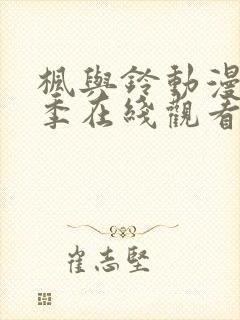 楓與鈴動漫
季在綫觀看
崔志堅